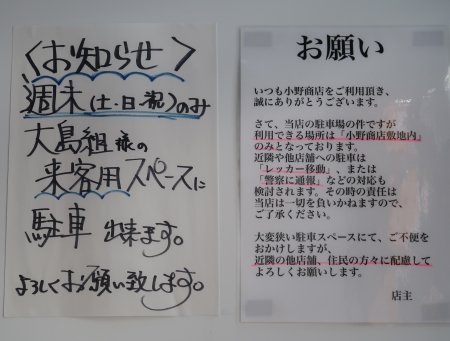 〈お知らせ〉
週末(土・日・祝)のみ
大島組様の
来客用スペースに
駐車 出来ます。
よろしくお願い致します。
お願い
いつも小野商店をご利用頂き、
誠にありがとうございます。
さて、当店の駐車場の件ですが
利用できる場所は「小野商店敷地内」
のみとなっております。
近隣や他店舗への駐車は
「レッカー移動」、または
「警察に通報」などの対応も
検討されます。その時の責任は
当店は一切を負いかねますので、
ご了承ください。
大変狭い駐車スペースにて、ご不便を
おかけしますが、
近隣の他店舗、住民の方々に配慮して
よろしくお願いします。
店主